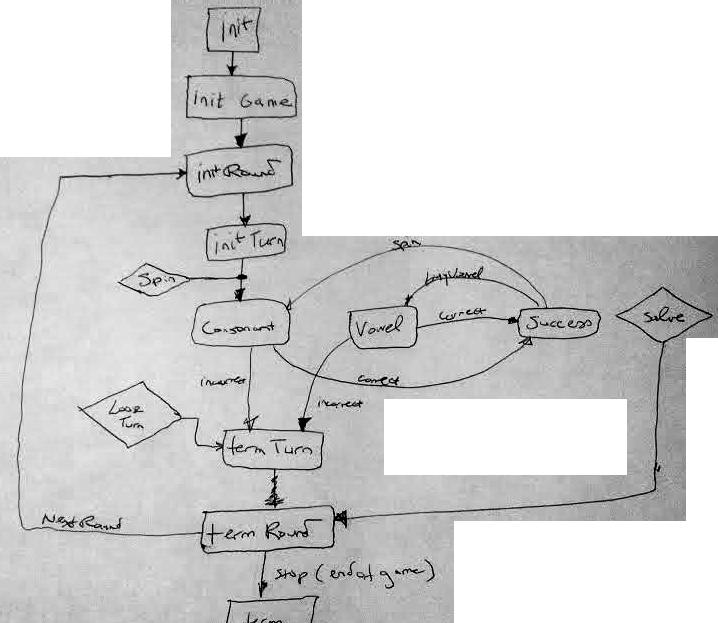 init
init Game
initRound
init Turn
spin
Spin
buyVowel
Consonant
Vowel
correct
Success
solve
incorrect
correct
incorrect
Lose
Turn
term Turn
NextRound
term Round
stop (end of game)
term